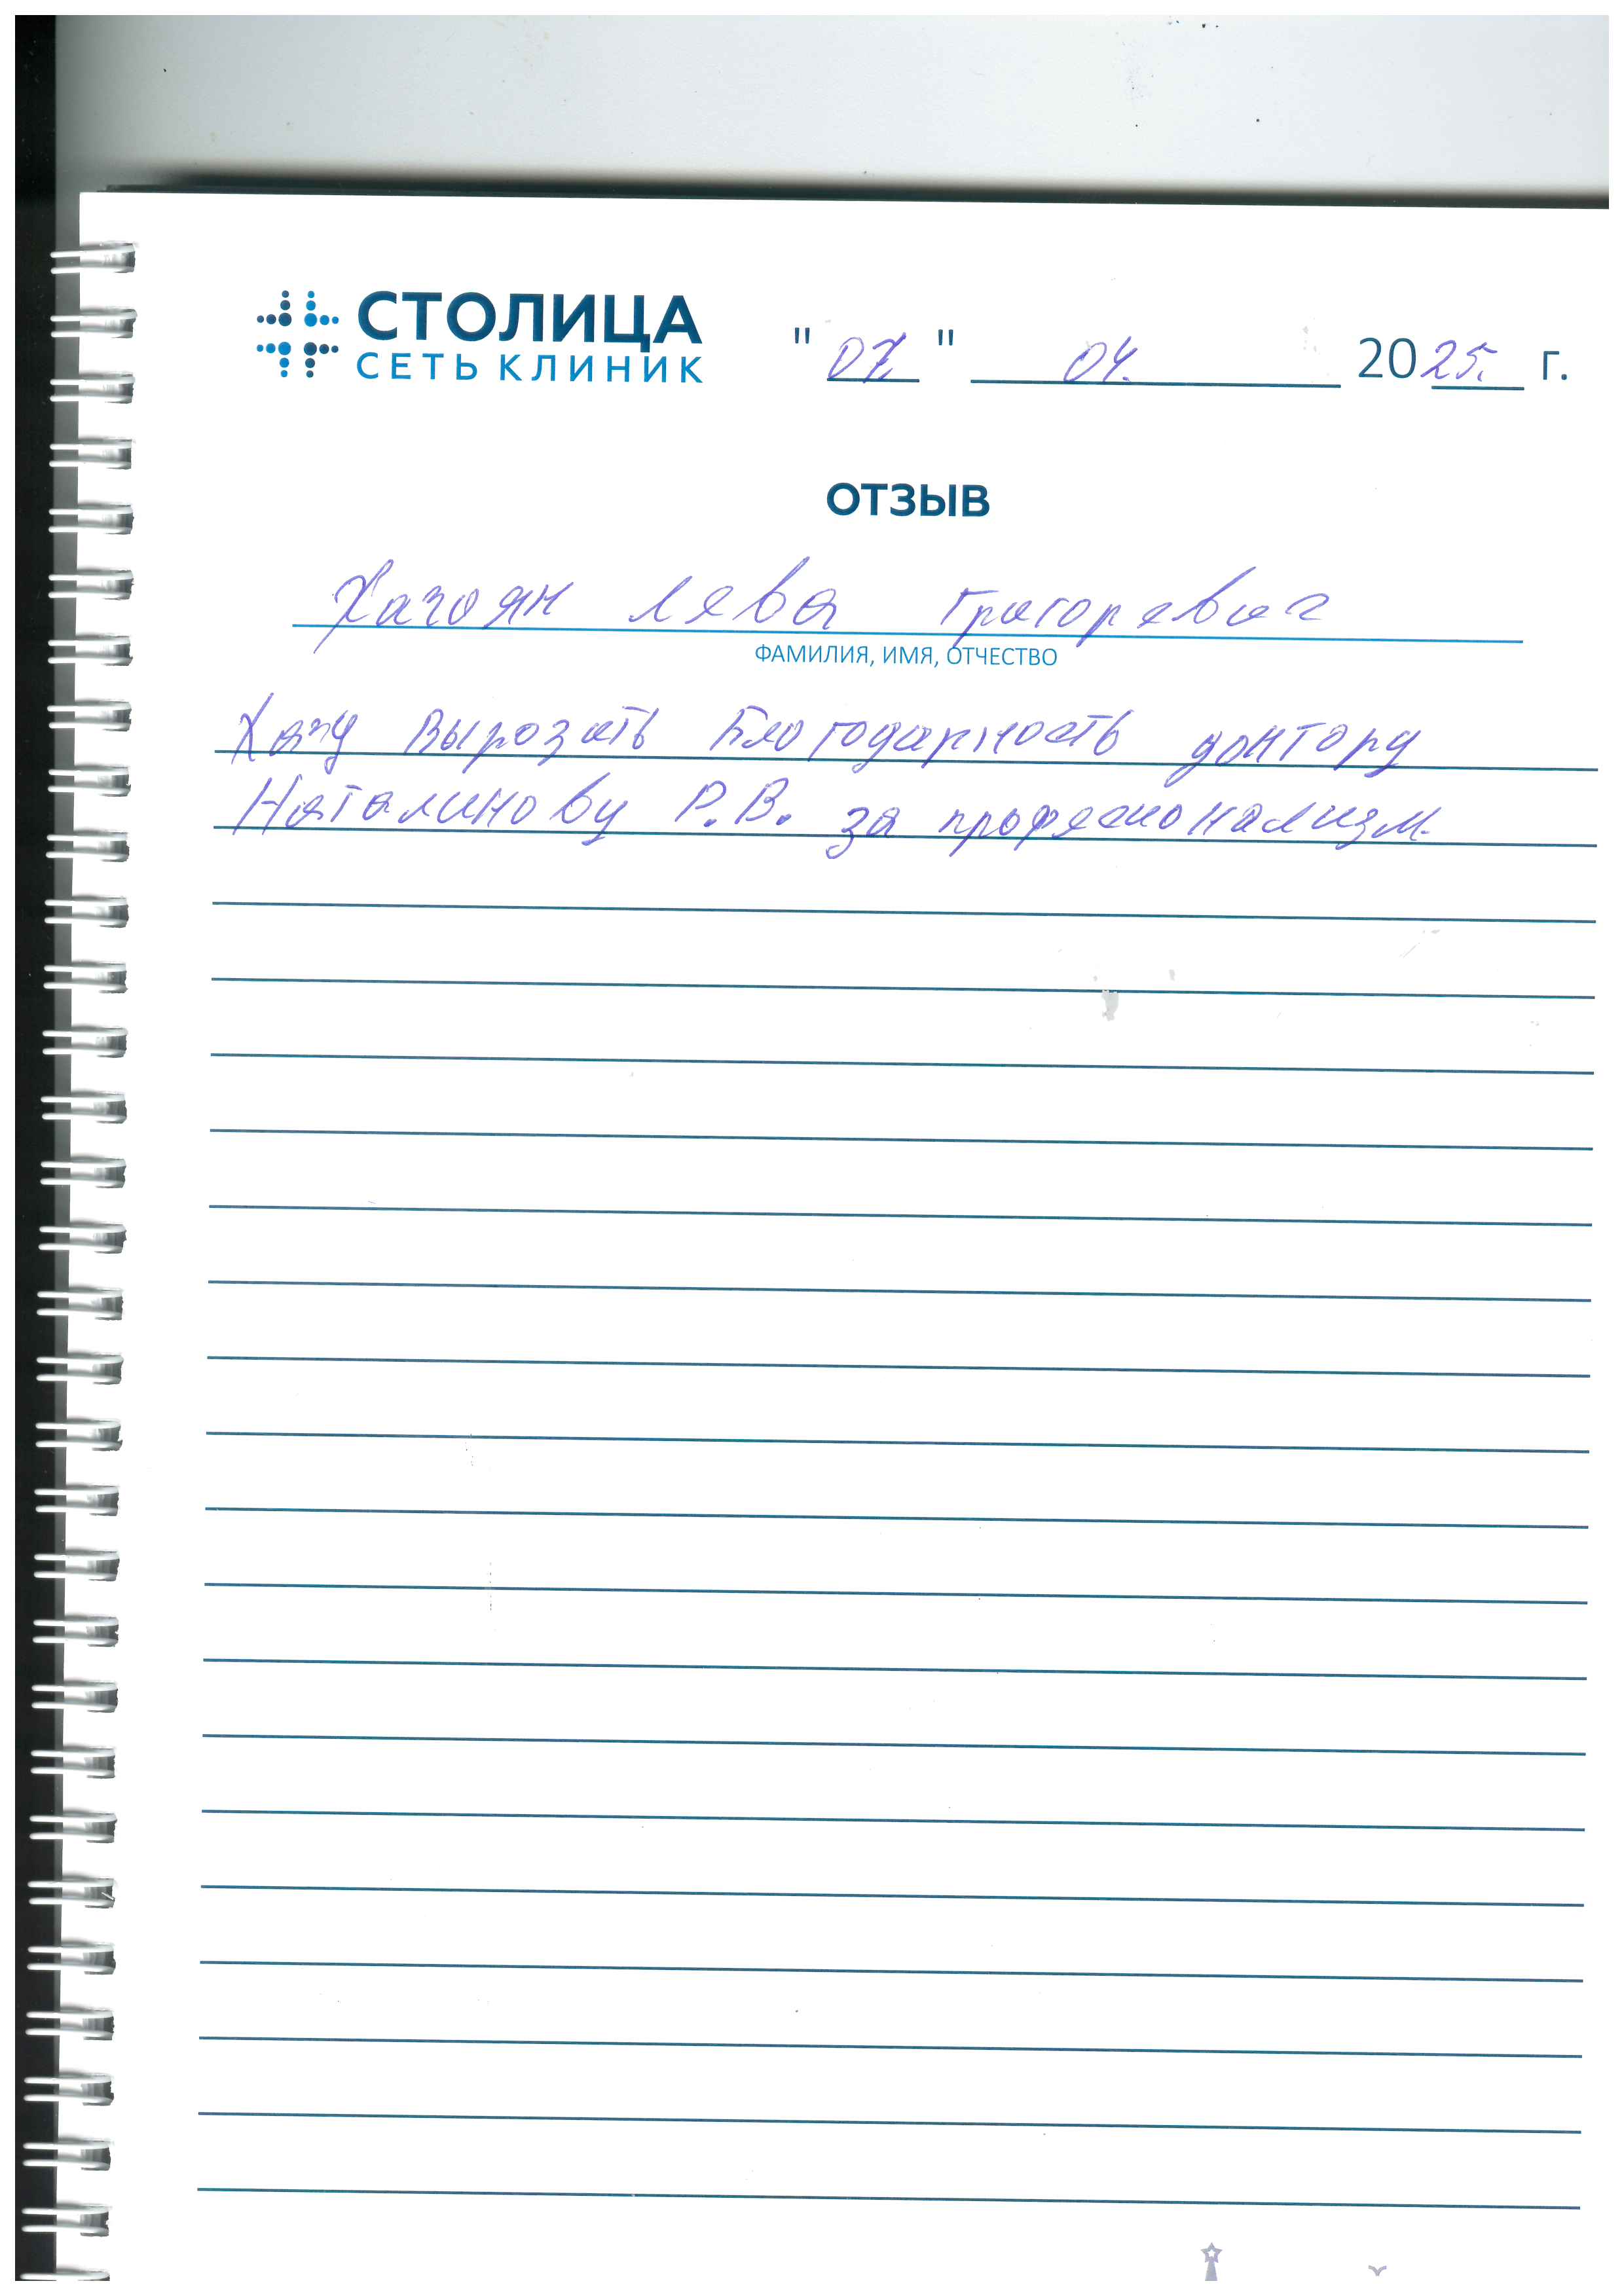 СТОЛИЦА
СЕТЬ КЛИНИК
" 07 " 04. 2025. г.
ОТЗЫВ
Хачоян Лева Григоревич
ФАМИЛИЯ, ИМЯ, ОТЧЕСТВО
Хачу Вырозать Благодарность доктору
Наталинову Р.В. за професионализм.